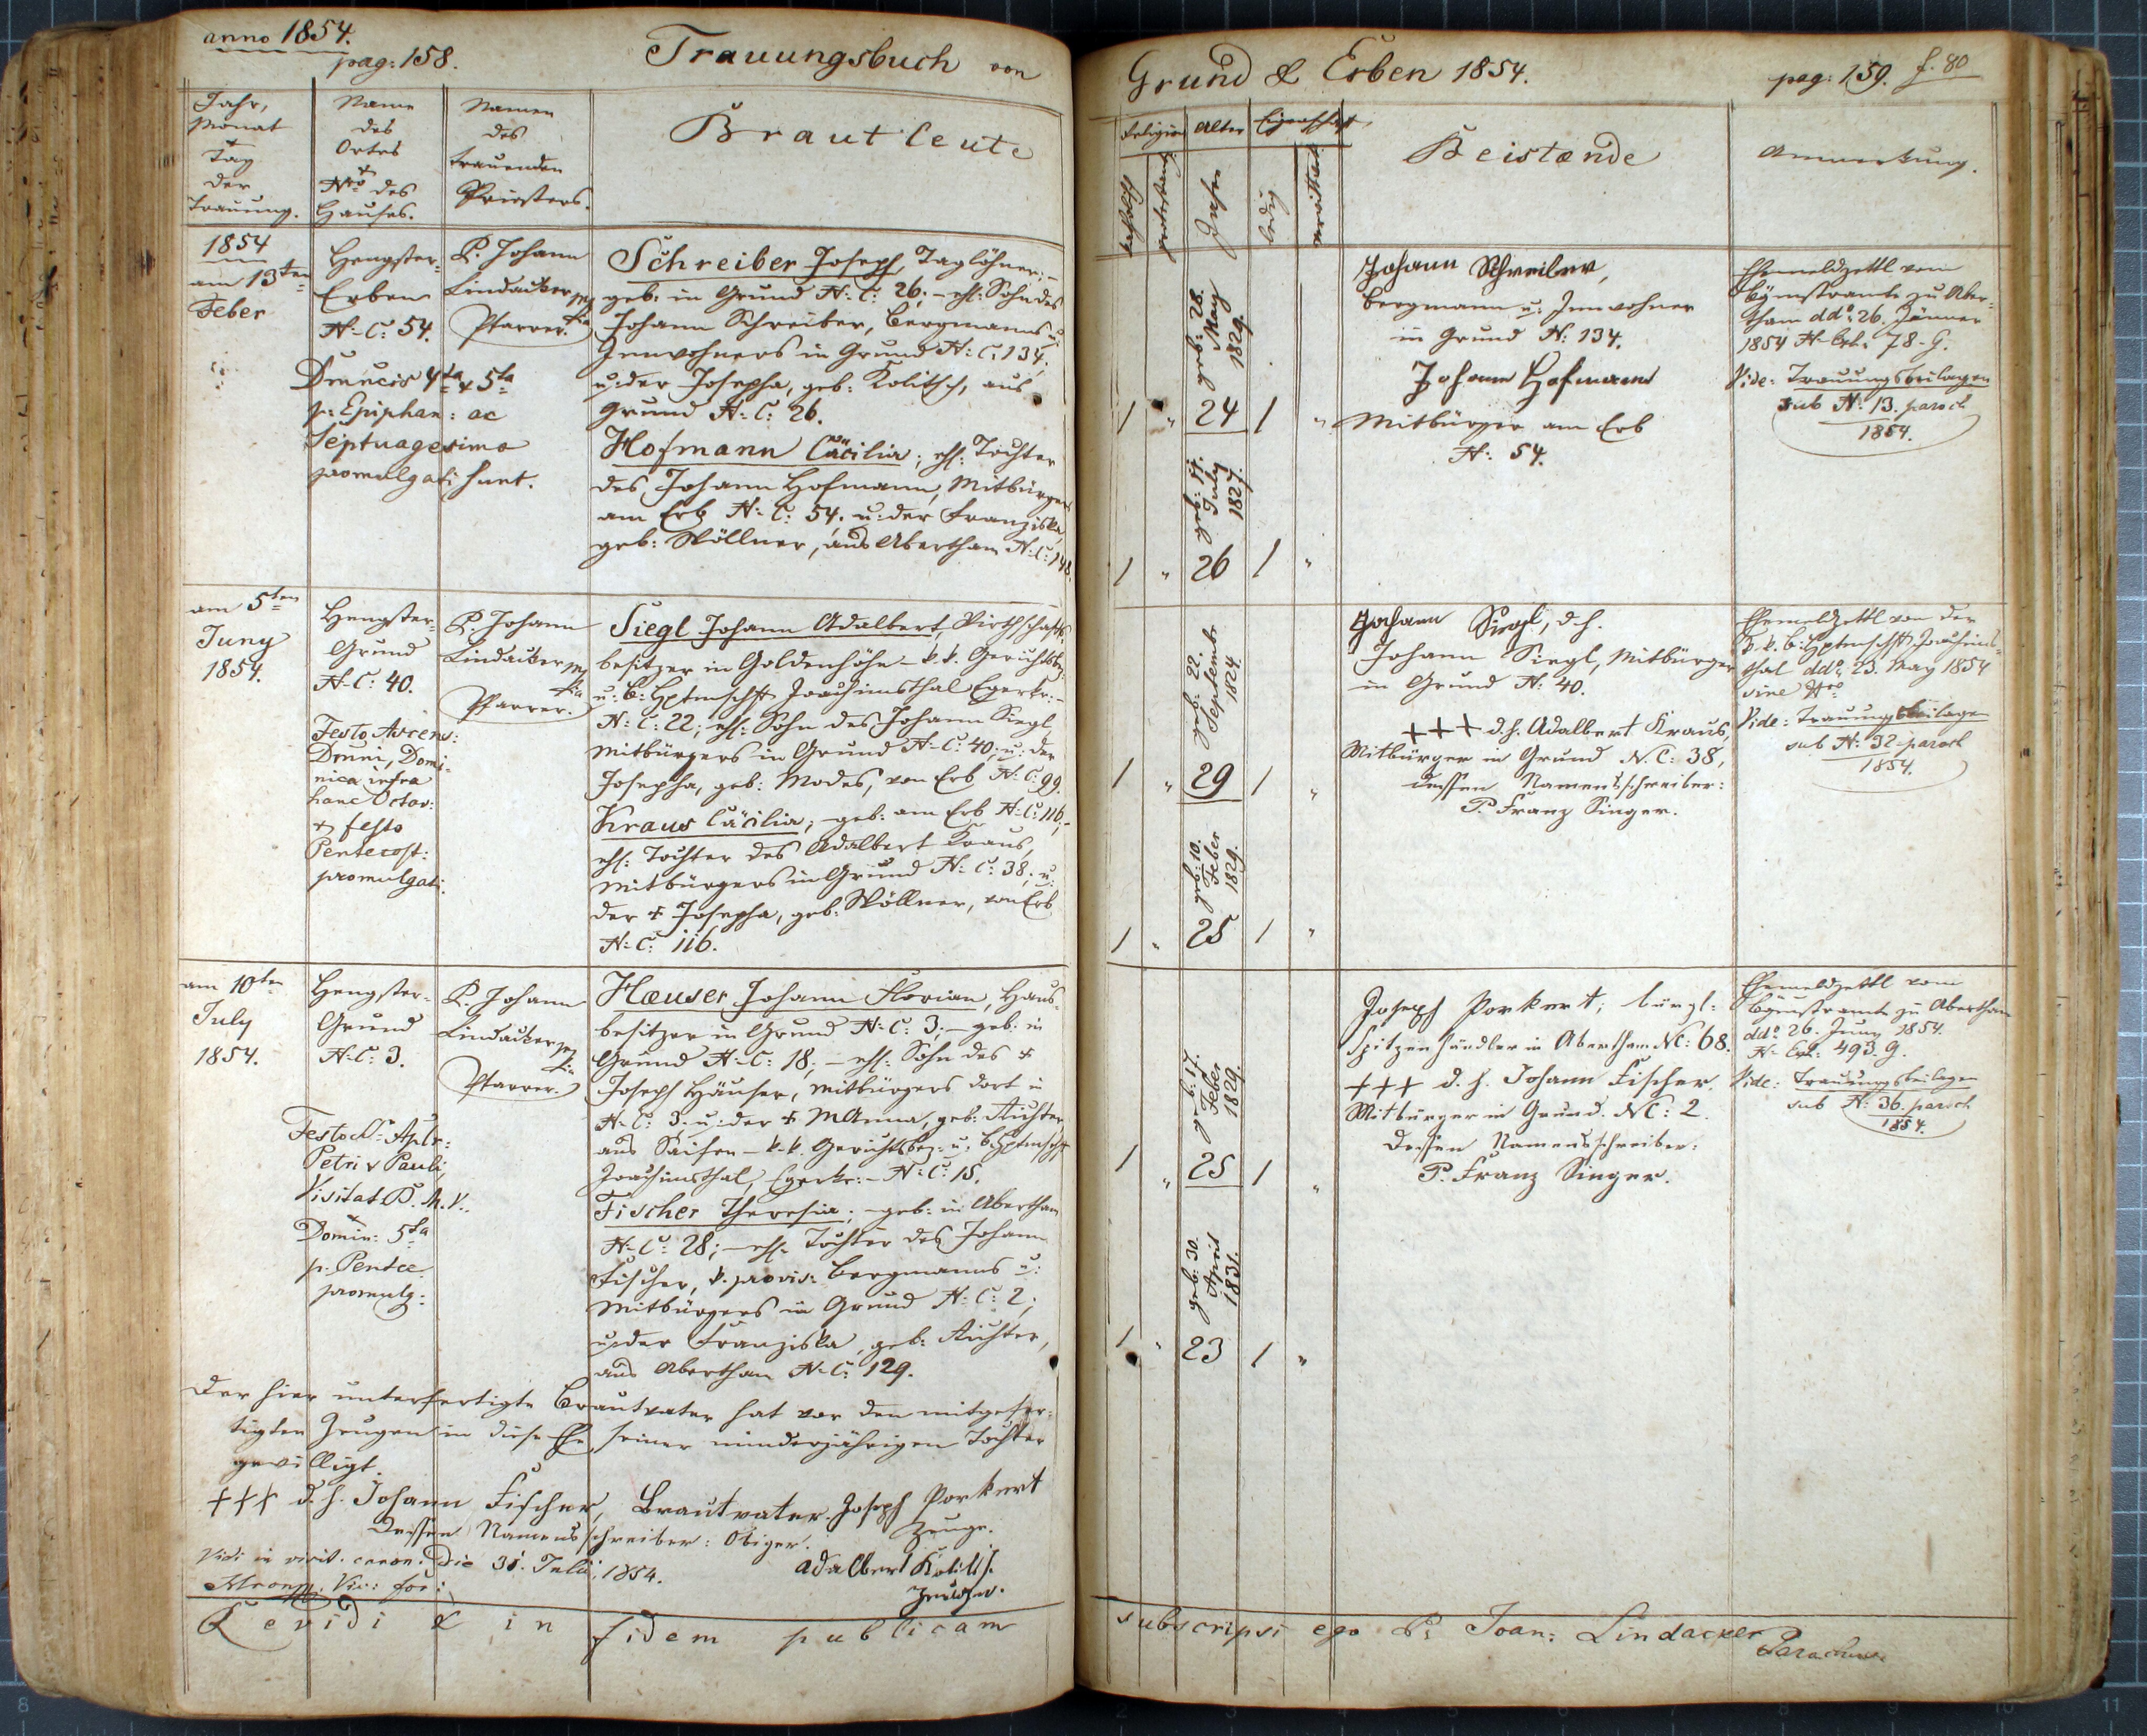 anno 1854.
pag: 158.
Trauungsbuch von
Jahr,
Monat
&
Tag
der
Trauung.
Name
des
Ortes
&
Nro des
Hauses.
Namen
des
trauenden
Priesters.
Brautleute
1854
am 13ten
Feber
Hengster-
Erben
N: C: 54.
Dnncis 4ta & 5ta
p: Epiphan: ac
Septuagesima
promulgati sunt.
P. Johann
Lindacker mp
Pfarrer.
Schreiber Joseph, Taglöhner; –
geb: in Grund N: C: 26; – ehl: Sohn des
Johann Schreiber, Bergmanns u:
Inwohners in Grund N: C: 134,
u: der Josepha, geb: Kolitsch, aus
Grund N: C: 26.
Hofmann Cäcilia; ehl: Tochter
des Johann Hofmann, Mitbürgers
am Erb N: C: 54. u: der Franziska,
geb: Wöllner, aus Abertham N: C: 148.
am 5ten
Juny
1854.
Hengster-
Grund
N: C: 40.
Festo Ascens:
Dmni, Domi-
nica infra
hanc Octav:
& festo
Pentecost:
promulgati.
P. Johann
Lindacker mp
Pfarrer.
Siegl Johann Adalbert, Wirthschafts-
besitzer in Goldenhöhe – k. k. Gerichtsbez:
u: B: Hptmschft Joachimsthal Egerkr: –
N: C: 22; ehl: Sohn des Johann Siegl,
Mitbürgers in Grund N: C: 40, u: der
Josepha, geb: Modes, von Erb N: C: 99.
Kraus Cäcilia; – geb: am Erb N: C: 116; –
ehl: Tochter des Adalbert Kraus,
Mitbürgers in Grund N: C: 38, u:
der † Josepha, geb: Wöllner, von Erb
N: C: 116.
am 10ten
July
1854.
Hengster-
Grund
N: C: 3.
Festo SS: Aplr:
Petri & Pauli,
Visitat. B. M. V.
&
Domin: 5ta
p. Pentec.
promulg:
P. Johann
Lindacker mp
Pfarrer.
Hæuser Johann Florian, Haus-
besitzer in Grund N: C: 3; – geb: in
Grund N: C: 18; – ehl: Sohn des †
Joseph Häuser, Mitbürgers dort in
N: C: 3. u: der † MAnna, geb: Richter
aus Saifen – k. k. Gerichtsbez: u: B: Hptmschft
Joachimsthal, Egerkr: – N: C: 15.
Fischer Theresia; – geb: in Abertham
N: C: 28; – ehl: Tochter des Johann
Fischer, k. provis: Bergmanns u:
Mitbürgers in Grund N: C: 2,
u: der Franziska, geb: Richter,
aus Abertham N: C: 129.
Der hier unterfertigte Brautvater hat vor den mitgefer-
tigten Zeugen in diese Ehe seiner minderjährigen Tochter
gewilligt.
+++ d. h. Johann Fischer, Brautvater. Joseph Porkert
Dessen Namensschreiber: Obiger. Zeuge.
Vidi in visit. canon: Die 31. Julii 1854.
Adalbert Kolitsch
Zeuge.
Revidi & in fidem publicam
Grund & Erben 1854.
pag: 159. f. 80
Religion
Alter
Eigenschaft
katholisch
protestant.
Jahre
ledig
verwittwet
Beistænde
Anmerkung.
geb: 28.
May
1829.
1 " 24 1 "
geb: 11.
July
1827.
1 " 26 1 "
Johann Schreiber,
Bergmann u: Innwohner
in Grund N: 134.
Johann Hofmann
Mitbürger am Erb
N: 54.
Ehemeldzettl vom
Bgmstramte zu Aber-
tham ddo: 26. Jänner
1854 N: Exh: 78 – G.
Vide: Trauungsbeilagen
sub N: 13. paroch
1854.
geb: 22.
September
1824.
1 " 29 1 "
geb: 10.
Feber
1829.
1 " 25 1 "
Johann Siegl, d. h.
Johann Siegl, Mitbürger
in Grund N: 40.
+++ d. h. Adalbert Kraus,
Mitbürger in Grund N. C: 38,
dessen Namensschreiber:
P. Franz Singer.
Ehemeldzettl von der
k. k. B: Hptmschft Joachims-
thal ddo: 23. May 1854
sine Nro
Vide: Trauungsbeilagen
sub N: 32 paroch
1854.
geb: 17.
Feber
1829.
1 " 25 1 "
geb: 30.
April
1831.
1 " 23 1 "
Joseph Porkert, bürgl:
Spitzenhändler in Abertham NC: 68.
+++ d. h. Johann Fischer,
Mitbürger in Grund. NC: 2.
Dessen Namensschreiber:
P. Franz Singer.
Ehemeldzettl vom
Bgmstramte zu Abertham
ddo: 26. Juny 1854.
N: Exh: 493. G.
Vide: Trauungsbeilagen
sub N: 36. paroch
1854.
subscripsi ego P: Joan: Lindacker
Parochus.